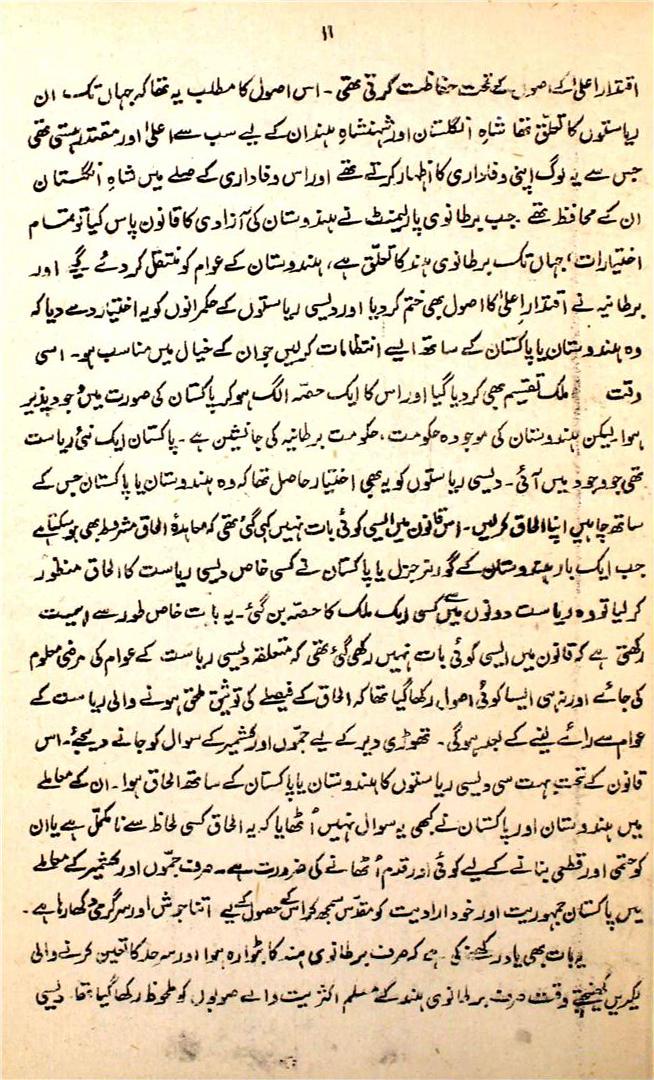 ۱۱
اقتدار اعلیٰ کے اصول کے تحت حفاظت کرتی تھی۔ اس اصول کا مطلب یہ تھا کہ جہاں تک ان
ریاستوں کا تعلق تھا شاہِ انگلستان اور شہنشاہِ ہند ان کے لیے سب سے اعلیٰ اور مقتدر ہستی تھی
جس سے یہ لوگ اپنی وفاداری کا اظہار کرتے تھے اور اس وفاداری کے صلے میں شاہِ انگلستان
ان کے محافظ تھے۔ جب برطانوی پارلیمنٹ نے ہندوستان کی آزادی کا قانون پاس کیا تو تمام
اختیارات، جہاں تک برطانوی ہند کا تعلق ہے، ہندوستان کے عوام کو منتقل کر دئے گیے اور
برطانیہ نے اقتدارِ اعلیٰ کا اصول بھی ختم کر دیا اور دیسی ریاستوں کے حکمرانوں کو یہ اختیار دے دیا کہ
وہ ہندوستان یا پاکستان کے ساتھ ایسے انتظامات کرلیں جو ان کے خیال میں مناسب ہو۔ اسی
وقت ملک تقسیم بھی کر دیا گیا اور اس کا ایک حصہ الگ ہو کر پاکستان کی صورت میں وجود پذیر
ہوا۔ لیکن ہندوستان کی موجودہ حکومت، حکومت برطانیہ کی جانشین ہے۔ پاکستان ایک نئی ریاست
تھی جو وجود میں آئی۔ دیسی ریاستوں کو یہ بھی اختیار حاصل تھا کہ وہ ہندوستان یا پاکستان جس کے
ساتھ چاہیں اپنا الحاق کرلیں۔ اس قانون میں ایسی کوئی بات نہیں کہی گئی تھی کہ معاہدۂ الحاق مشروط بھی ہو سکتا ہے
جب ایک بار ہندوستان کے گورنر جنرل یا پاکستان نے کسی خاص دیسی ریاست کا الحاق منظور
کر لیا تو وہ ریاست دونوں میں سے کسی ایک ملک کا حصہ بن گئی۔ یہ بات خاص طور سے اہمیت
رکھتی ہے کہ قانون میں ایسی کوئی بات نہیں رکھی گئی تھی کہ متعلقہ دیسی ریاست کے عوام کی مرضی معلوم
کی جائے اور نہ ہی ایسا کوئی اصول رکھا گیا تھا کہ الحاق کے فیصلے کی توثیق ملحق ہونے والی ریاست کے
عوام سے رائے لینے کے بعد ہوگی۔ تھوڑی دیر کے لیے جموں اور کشمیر کے سوال کو جانے دیجئے۔ اس
قانون کے تحت بہت سی دیسی ریاستوں کا ہندوستان یا پاکستان کے ساتھ الحاق ہوا۔ ان کے معاملے
میں ہندوستان اور پاکستان نے کبھی یہ سوال نہیں اُٹھایا کہ یہ الحاق کسی لحاظ سے نا مکمل ہے یا ان
کو حتمی اور قطعی بنانے کے لیے کوئی اور قدم اُٹھانے کی ضرورت ہے۔ صرف جموں اور کشمیر کے معاملے
میں پاکستان جمہوریت اور خود ارادیت کو مقدس سمجھ کر اس کے حصول کے لیے اتنا جوش اور سرگرمی دکھا رہا ہے۔
یہ بات بھی یاد رکھنے کی ہے کہ صرف برطانوی ہند کا بٹوارہ ہوا اور سرحد کا تعین کرنے والی
لکیریں کھینچتے وقت صرف برطانوی ہند کے مسلم اکثریت والے صوبوں کو ملحوظ رکھا گیا تھا۔ دیسی